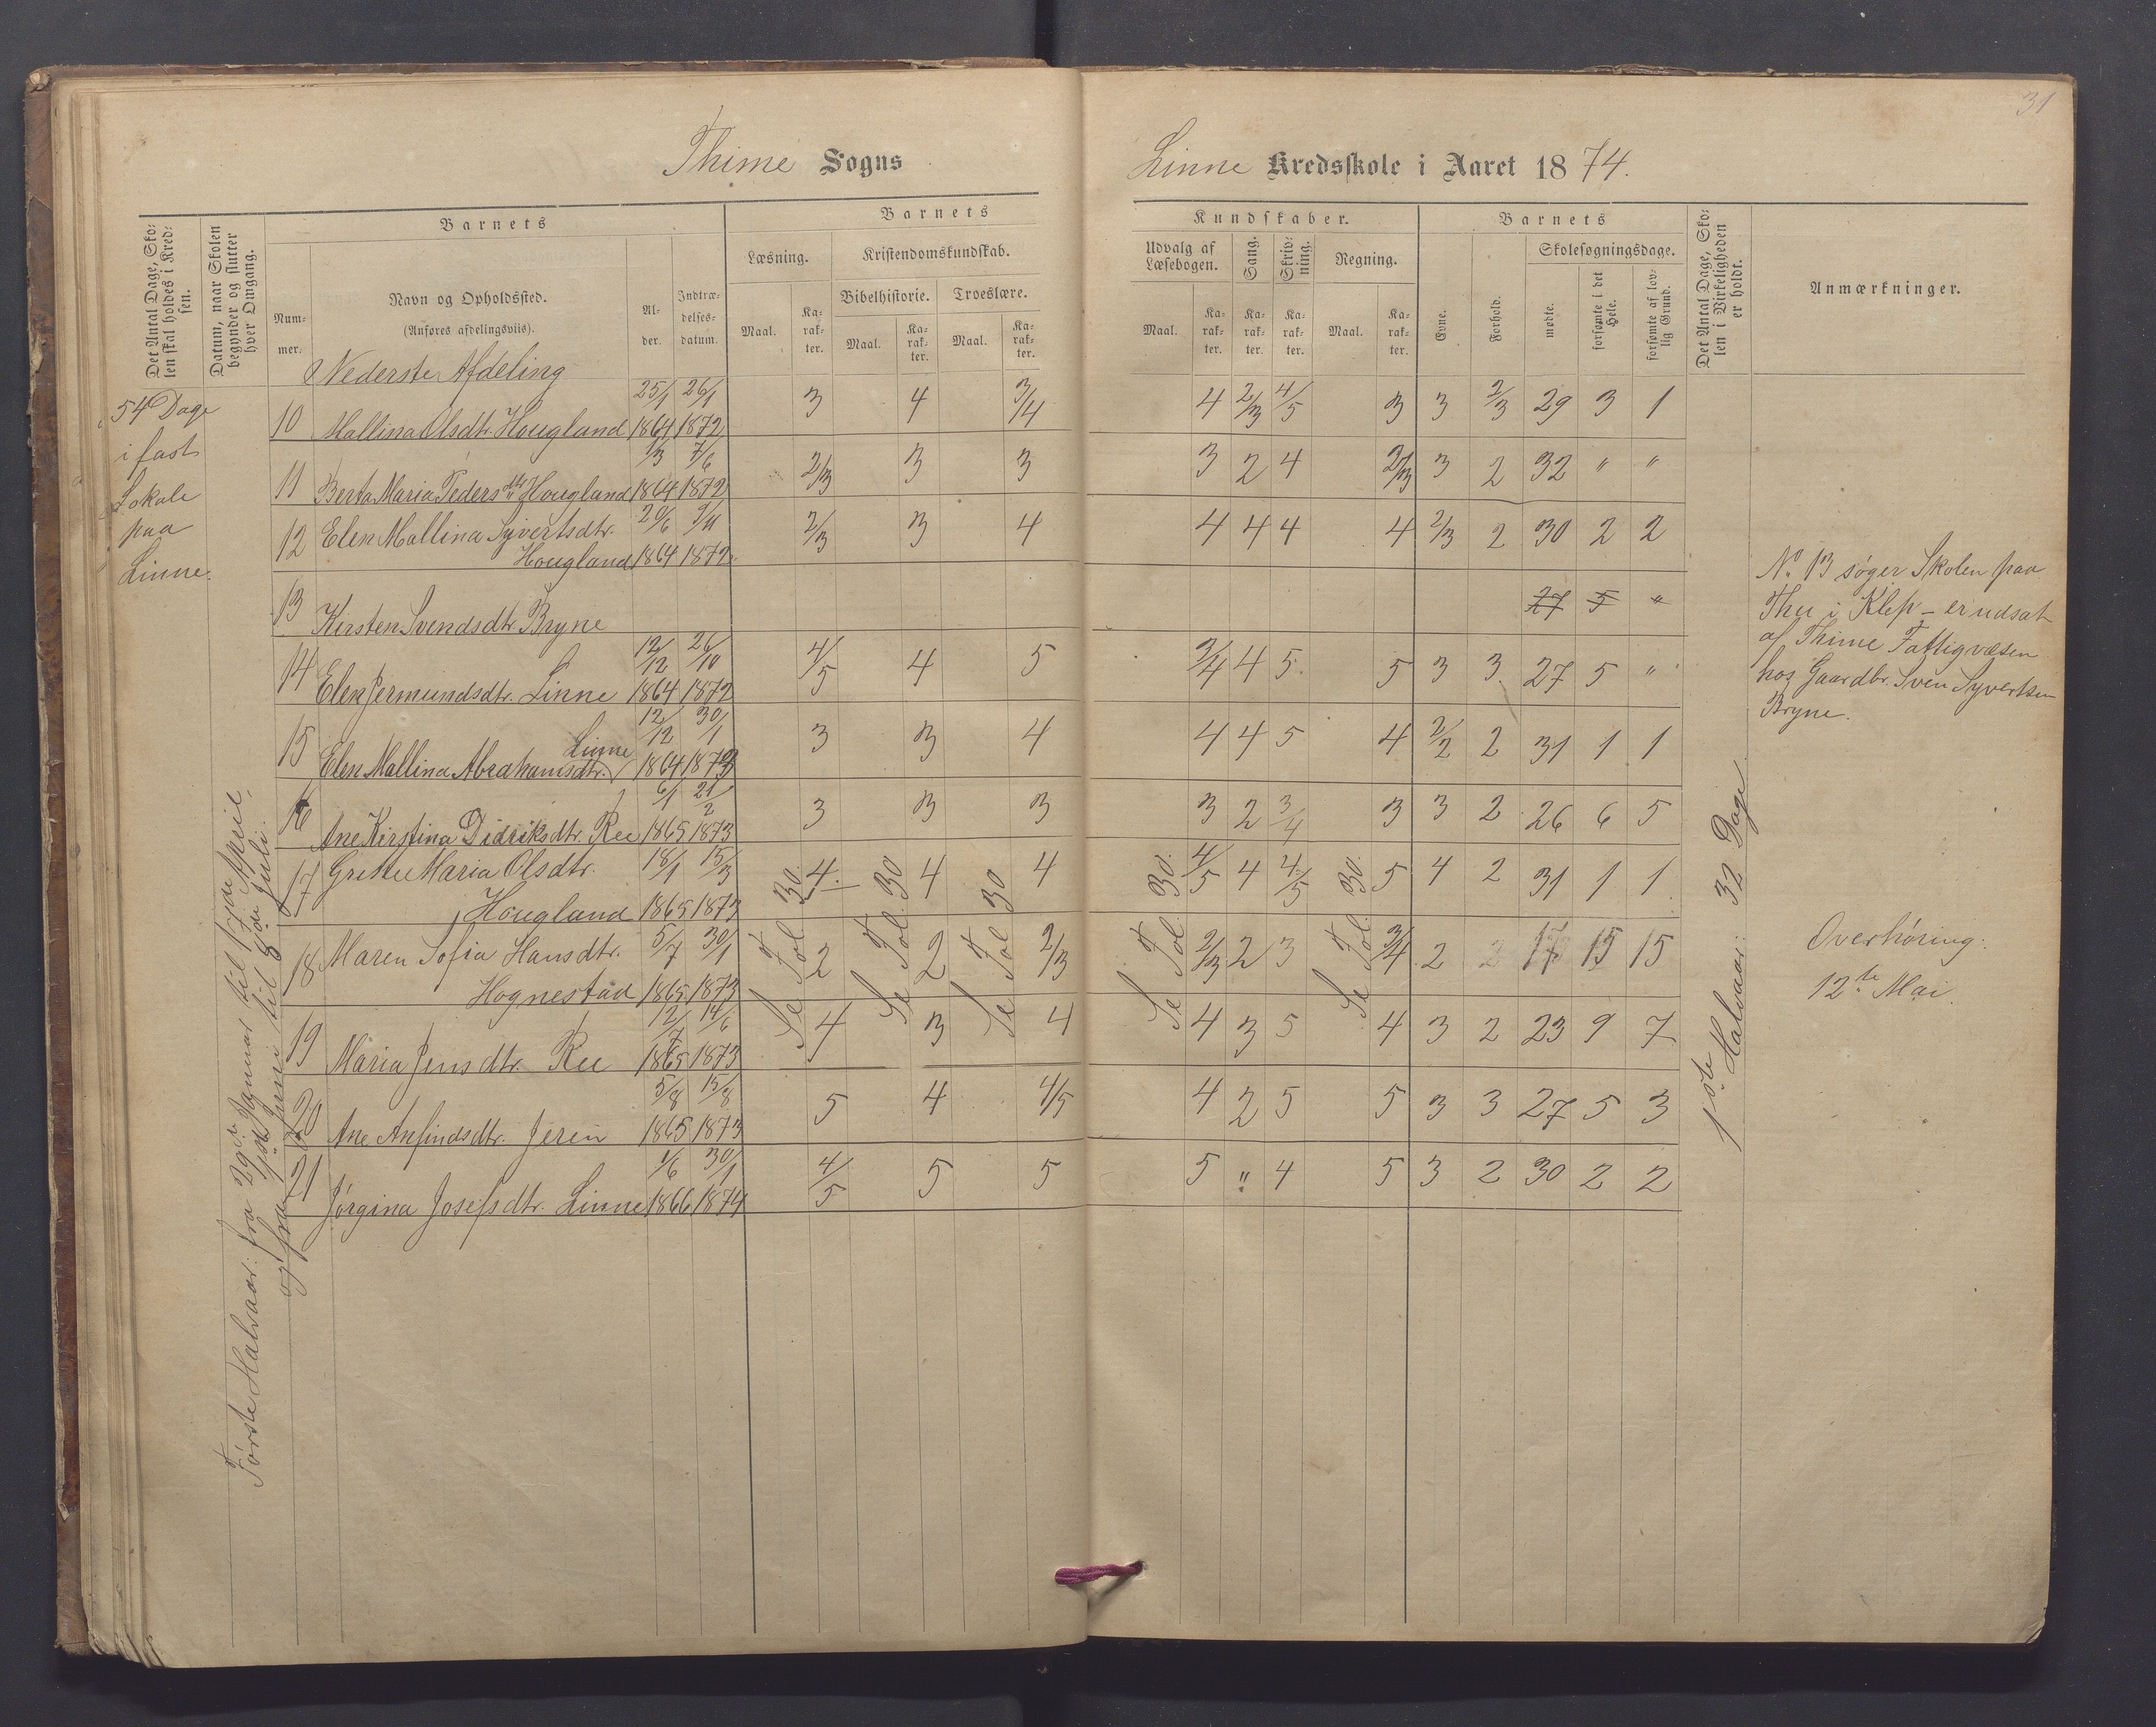 31
Thime Sogns
Linne Kredsskole i Aaret 1874.
Det Antal Dage, Skolen skal holdes i Kredsen.
Datum, naar Skolen begynder og slutter hver Omgang.
Barnets
Nummer.
Navn og Opholdssted.
(Anføres afdelingsviis).
Alder.
Indtrædelsesdatum.
Barnets
Læsning.
Kristendomskundskab.
Bibelhistorie.
Troeslære.
Maal.
Karakter.
Maal.
Karakter.
Maal.
Karakter.
Kundskaber.
Udvalg af Læsebogen.
Sang.
Skrivning.
Regning.
Maal.
Karakter.
Karakter.
Karakter.
Maal.
Karakter.
Barnets
Evne.
Forhold.
Skolesøgningsdage.
mødte.
forsømte i det Hele.
forsømte af lovlig Grund.
Det Antal Dage, Skolen i Virkeligheden er holdt.
Anmærkninger.
54 Dage
i fast
Lokale
paa
Linne.
Første Halvaar: fra 29de Januar til 17de April,
og fra 1ste Juni til 8de Juli.
Nederste Afdeling
10 Mallina Olsdtr. Hougland 25/1 1864 26/1 1872 3 4 3/4 4 2/3 4/5 3 3 2/3 29 3 1
11 Berta Maria Pedersdtr Hougland 1/3 1864 7/6 1872 2/3 3 3 3 2 4 2/3 3 2 32 " "
12 Elen Mallina Syvertsdtr. Hougland 20/6 1864 1872 2/3 3 4 4 4 4 4 2/3 2 30 2 2
13 Kirsten Svendsdtr. Bryne 27 5 "
14 Elen Jermundsdtr. Linne 12/12 1864 26/10 1872 4/5 4 5 3/4 4 5 5 3 3 27 5 "
15 Elen Mallina Abrahamsdtr. Linne 12/12 1864 30/1 1873 3 3 4 4 4 5 4 2/2 2 31 1 1
16 Ane Kirstina Didriksdtr. Ree 6/1 1865 21/2 1873 3 3 3 3 2 3/4 3 3 2 26 6 5
17 Grethe Maria Olsdtr. Hougland 18/1 1865 15/3 1873 4 4 4 4/5 4 4/5 5 4 2 31 1 1
18 Maren Sofia Hansdtr. Hognestad 5/7 1865 30/1 1873 2 2 2/3 2/3 2 3 3/4 2 2 17 15 15
19 Maria Jensdtr. Ree 12/7 1865 14/6 1873 4 3 4 4 3 5 4 3 2 23 9 7
20 Ane Anfindsdtr. Jeren 5/8 1865 15/8 1873 5 4 4/5 4 2 5 5 3 3 27 5 3
21 Jørgina Josefsdtr. Linne 1/6 1866 30/1 1874 4/5 5 5 5 " 4 5 3 2 30 2 2
Se Fol. 30.
Se Fol. 30
Se Fol. 30
Se Fol. 30.
Se Fol. 30.
1ste Halvaar: 32 Dage.
No. 13 søger Skolen paa
Thu i Klep - er udsat
af Thime Fattigvæsen
hos Gaardbr. Sven Syvertsen
Bryne.
Overhøring:
12te Mai.